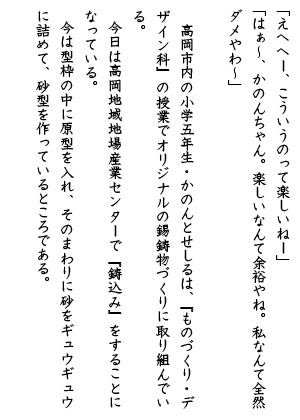 「えへへー、こういうのって楽しいねー」
「はぁ～、かのんちゃん。楽しいなんて余裕やね。私なんて全然
ダメやわ～」
　高岡市内の小学五年生・かのんとせしるは、『ものづくり・デ
ザイン科』の授業でオリジナルの錫鋳物づくりに取り組んでい
る。
　今日は高岡地域地場産業センターで『鋳込み』をすることに
なっている。
　今は型枠の中に原型を入れ、そのまわりに砂をギュウギュウ
に詰めて、砂型を作っているところである。